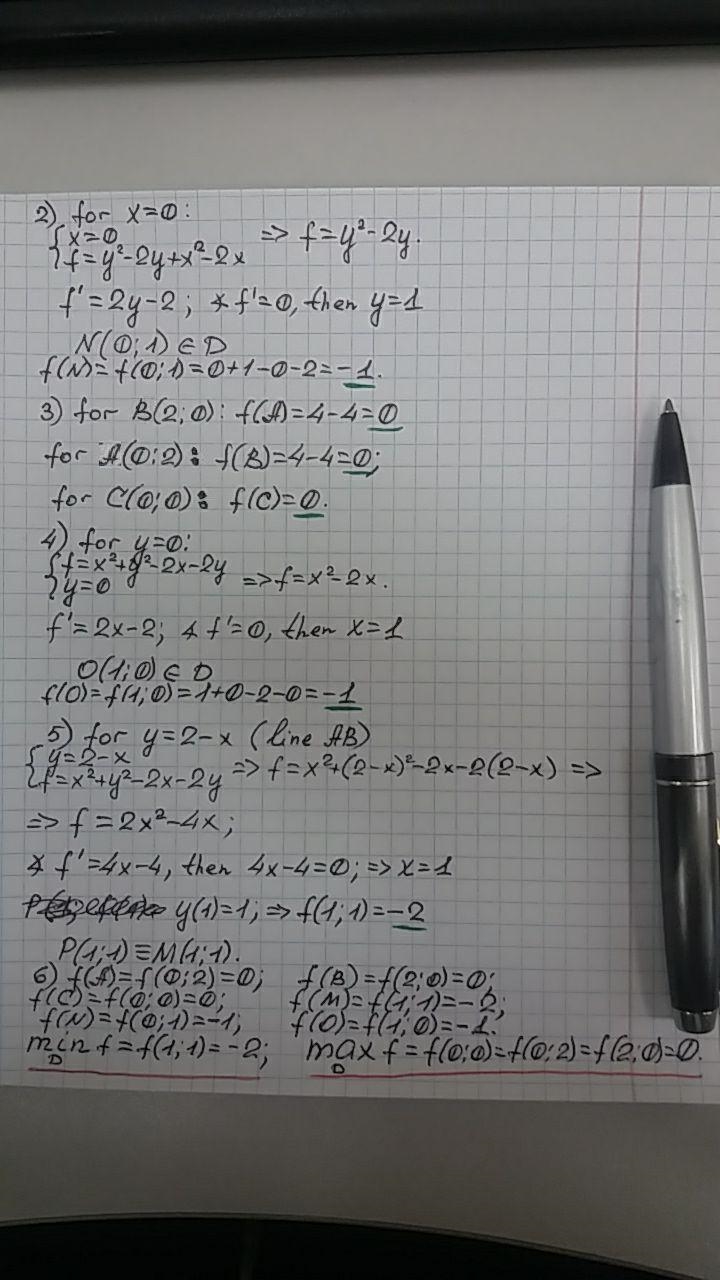 2) for x=0:
{x=0
{f=y²-2y+x²-2x => f=y²-2y.
f'=2y-2; ∡ f'=0, then y=1
N(0;1)∈D
f(N)=f(0;1)=0+1-0-2=-1.
3) for B(2;0): f(A)=4-4=0
for A(0;2): f(B)=4-4=0;
for C(0;0): f(C)=0.
4) for y=0:
{f=x²+y²-2x-2y
{y=0 =>f=x²-2x.
f'=2x-2; ∡ f'=0, then x=1
O(1;0)∈D
f(O)=f(1;0)=1+0-2-0=-1
5) for y=2-x (line AB)
{y=2-x
{f=x²+y²-2x-2y => f=x²+(2-x)²-2x-2(2-x) =>
=> f=2x²-4x;
∡ f'=4x-4, then 4x-4=0; => x=1
y(1)=1; => f(1;1)=-2
P(1;1)≡M(1;1).
6) f(A)=f(0;2)=0; f(B)=f(2;0)=0;
f(C)=f(0;0)=0; f(M)=f(1;1)=-2;
f(N)=f(0;1)=-1; f(O)=f(1;0)=-1.
min f=f(1;1)=-2; max f=f(0;0)=f(0;2)=f(2;0)=0.
D D